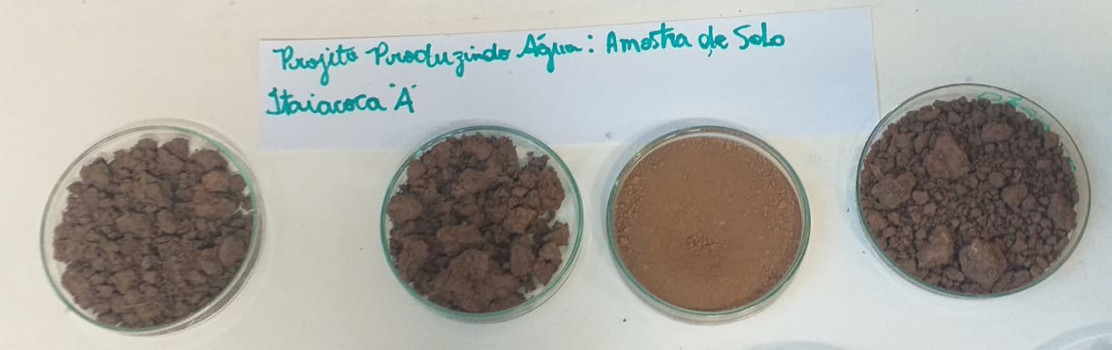 Projeto Produzindo Água: Amostra de Solo
Itaiacoca "A"